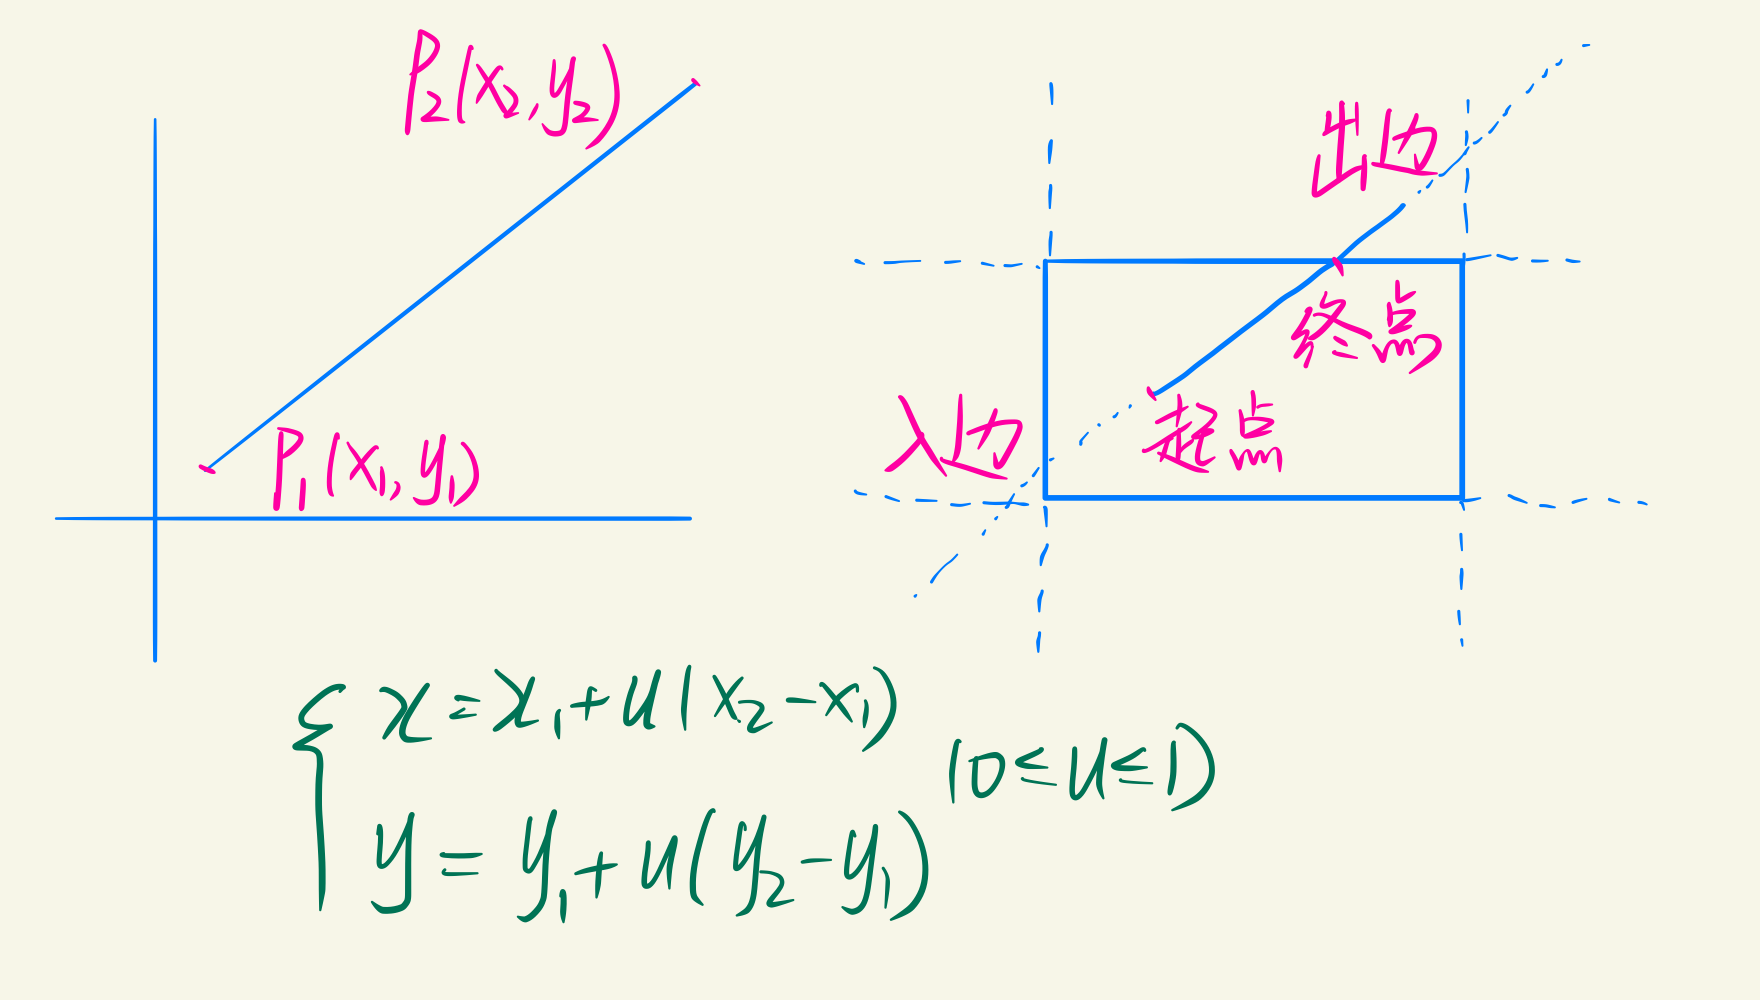 P₂(x₂,y₂)
P₁(x₁,y₁)
出边
终点
入边
起点
x=x₁+u(x₂-x₁)
(0≤u≤1)
y=y₁+u(y₂-y₁)